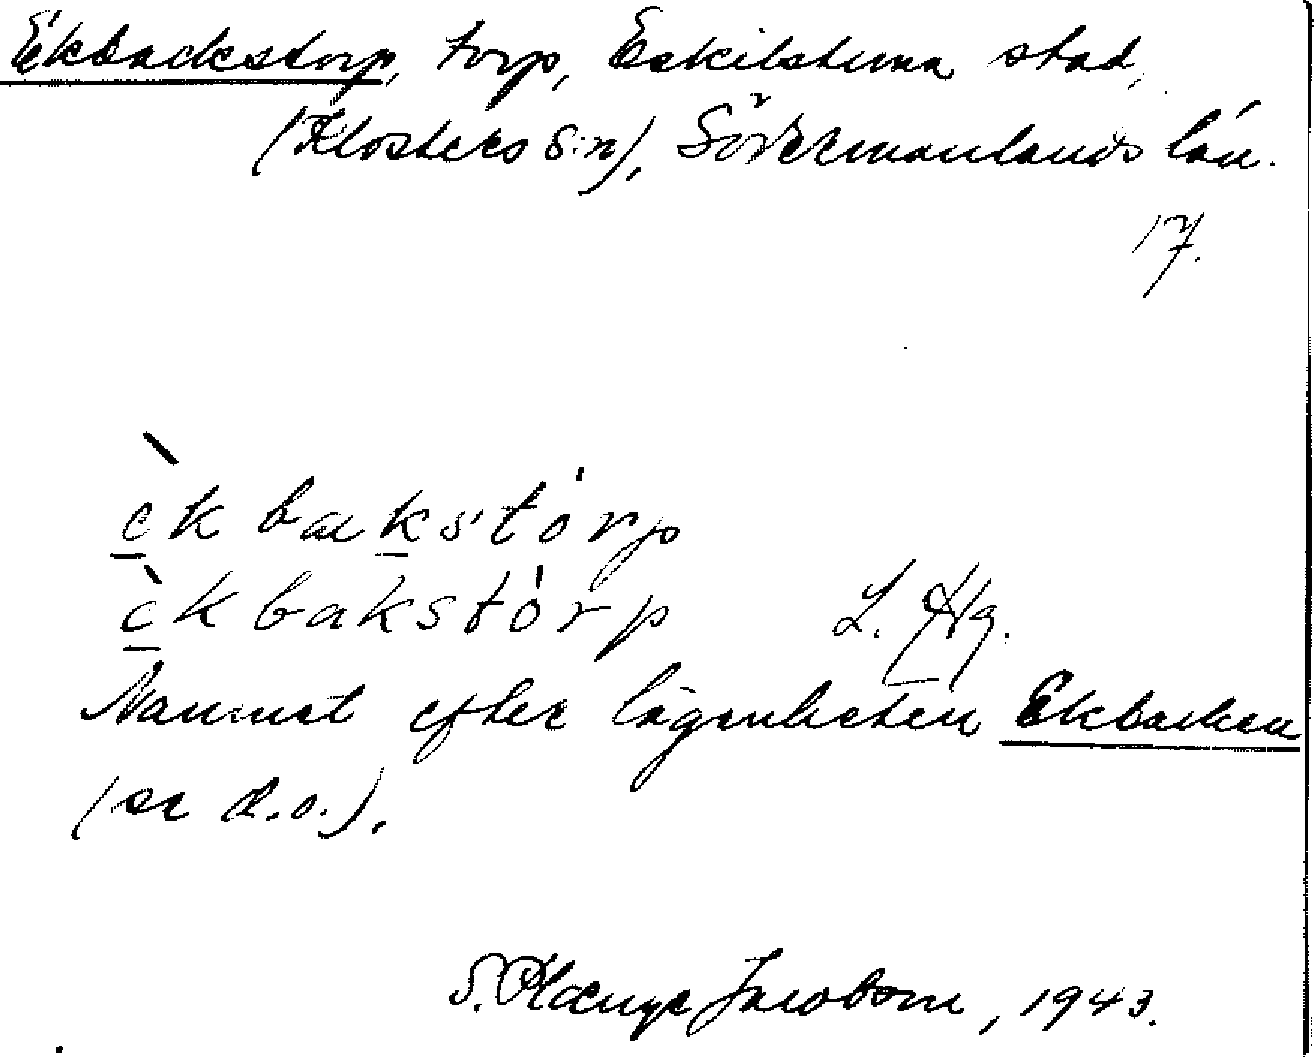 Ekbackstorp, torp, Eskilstuna stad,
(Klosters s:n), Södermanlands län.
17.
èkbakstórp
èkbakstórp L. Hg.
Namnet efter lägenheten Ekbacken
(se d.o.).
S. Jacobson, 1943.